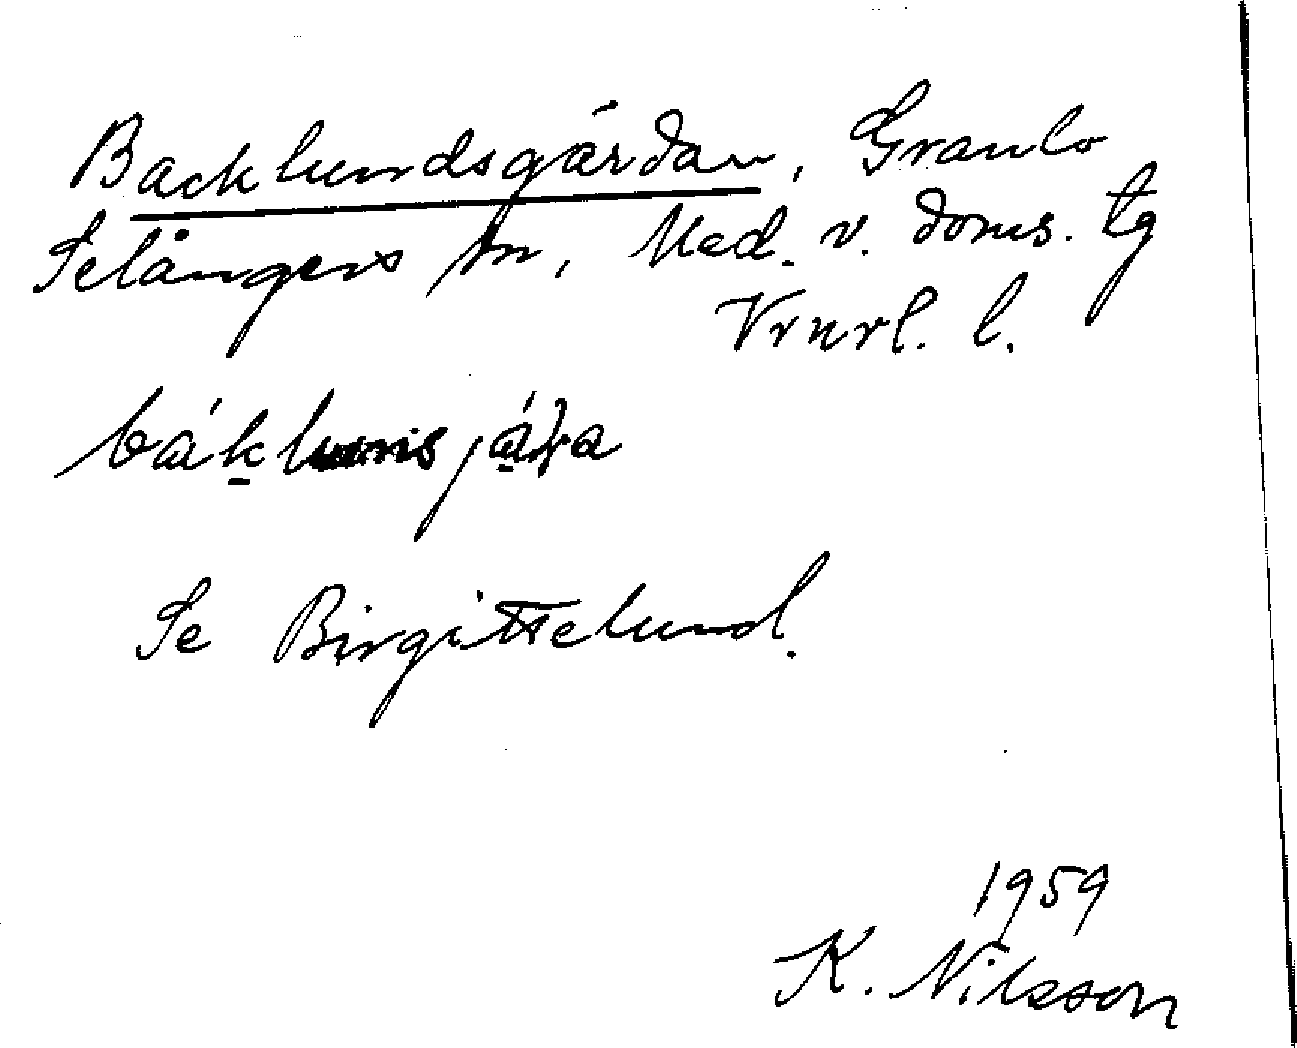 Backlundsgärdan, Granlo
Selångers sn, Med. v. doms. tg
Vrnrl. l.
Se Birgittelund.
1959
K. Nilsson